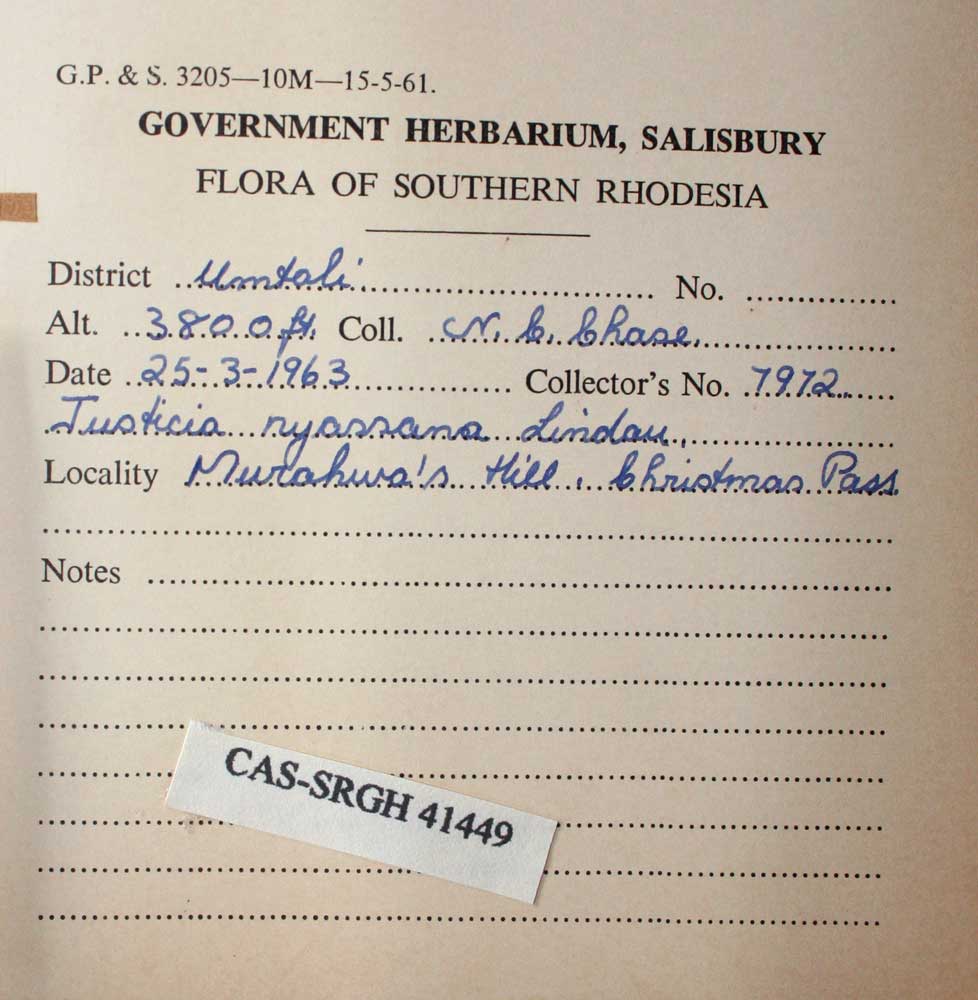 G.P. & S. 3205—10M—15-5-61.
GOVERNMENT HERBARIUM, SALISBURY
FLORA OF SOUTHERN RHODESIA
District Umtali No.
Alt. 3800 ft. Coll. N. C. Chase.
Date 25-3-1963 Collector's No. 7972
Justicia nyassana Lindau,
Locality Murahwa's Hill, Christmas Pass
Notes
CAS-SRGH 41449